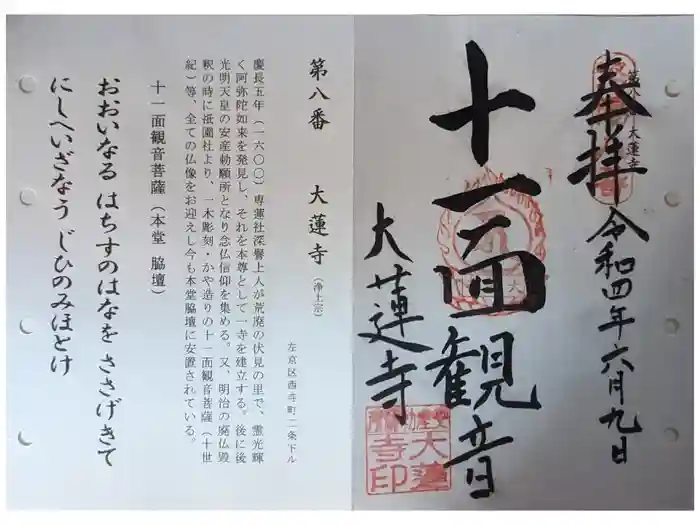 奉拝
第八番
大蓮寺
令和四年六月九日
十一面観音
大蓮寺
大蓮
寺印
第八番　大蓮寺（浄土宗）
左京区西寺町二条下ル
慶長五年（一六〇〇）専蓮社深誉上人が荒廃の伏見の里で、霊光輝
く阿弥陀如来を発見し、それを本尊として一寺を建立する。後に後
光明天皇の安産勅願所となり念仏信仰を集める。又、明治の廃仏毀
釈の時に祇園社より、一木彫刻・かや造りの十一面観音菩薩（十世
紀）等、全ての仏像をお迎えし今も本堂脇壇に安置されている。
十一面観音菩薩（本堂 脇壇）
おおいなる はちすのはなを ささげきて
にしへいざなう じひのみほとけ